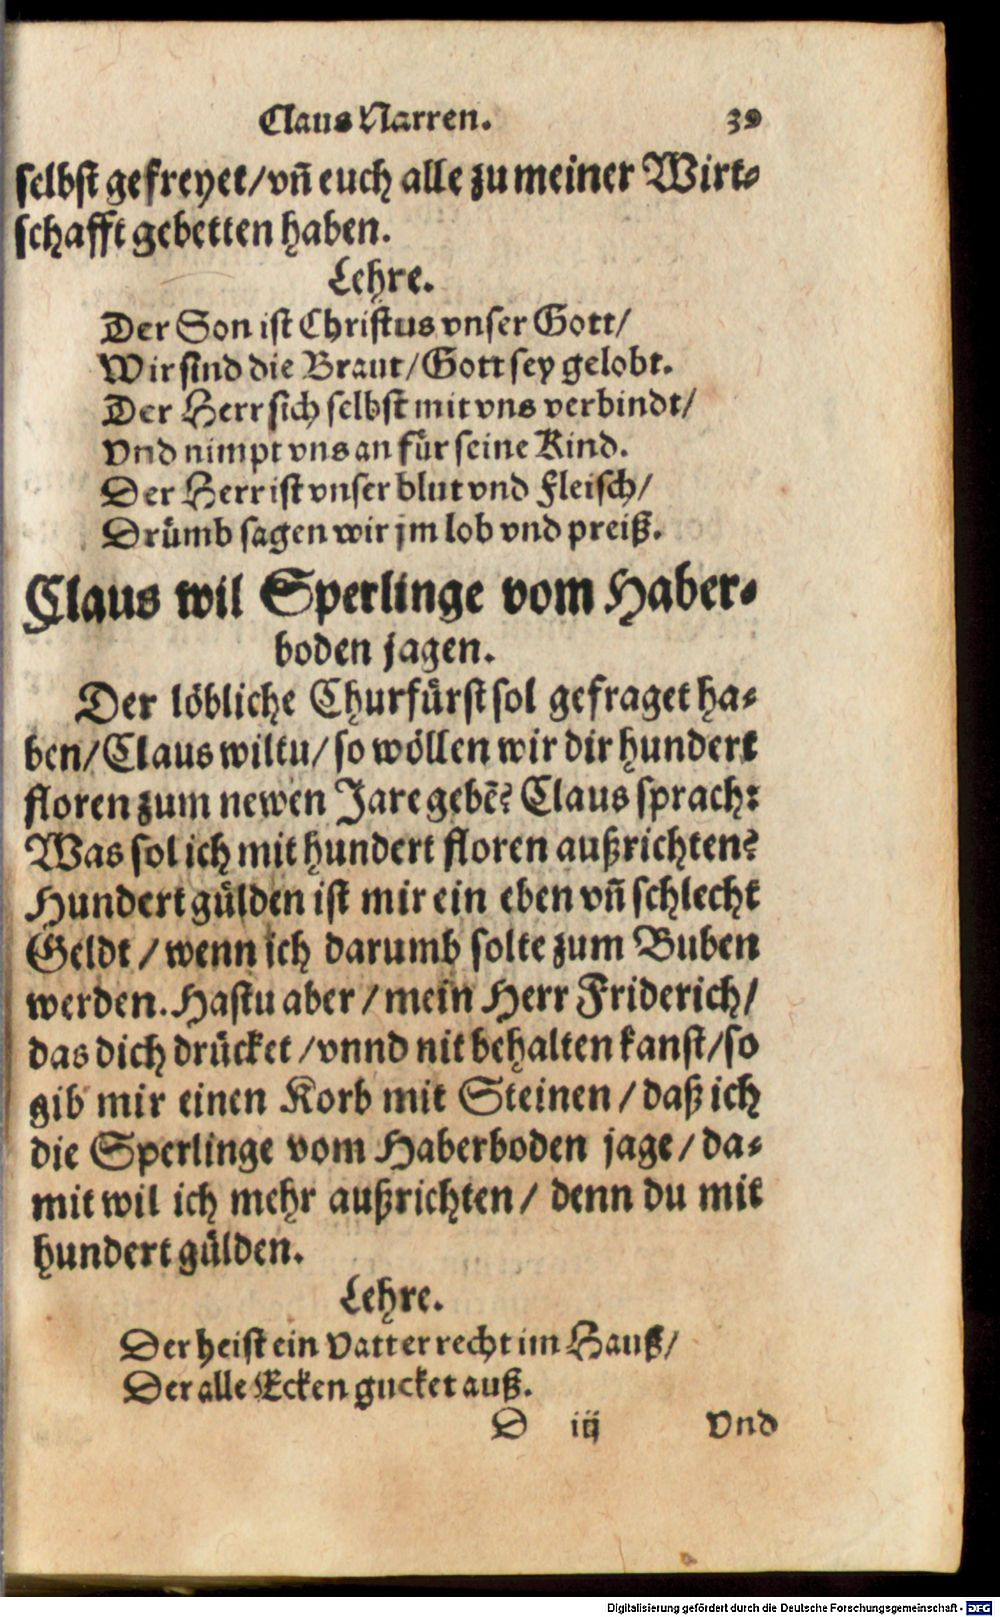 Claus Narren. 39
selbst gefreyet/vn̄ euch alle zu meiner Wirt-
schafft gebetten haben.
Lehre.
Der Son ist Christus vnser Gott/
Wir sind die Braut/Gott sey gelobt.
Der Herr sich selbst mit vns verbindt/
Vnd nimpt vns an für seine Kind.
Der Herr ist vnser blut vnd Fleisch/
Drümb sagen wir jm lob vnd preiß.
Claus wil Sperlinge vom Haber-
boden jagen.
Der löbliche Churfürst sol gefraget ha-
ben/Claus wiltu/so wöllen wir dir hundert
floren zum newen Jare gebē? Claus sprach:
Was sol ich mit hundert floren außrichten?
Hundert gülden ist mir ein eben vn̄ schlecht
Geldt/wenn ich darumb solte zum Buben
werden. Hastu aber/mein Herr Friderich/
das dich drücket/vnnd nit behalten kanst/so
gib mir einen Korb mit Steinen/daß ich
die Sperlinge vom Haberboden jage/da-
mit wil ich mehr außrichten/denn du mit
hundert gülden.
Lehre.
Der heist ein Vatter recht im Hauß/
Der alle Ecken gucket auß.
D iij Vnd
Digitalisierung gefördert durch die Deutsche Forschungsgemeinschaft - DFG